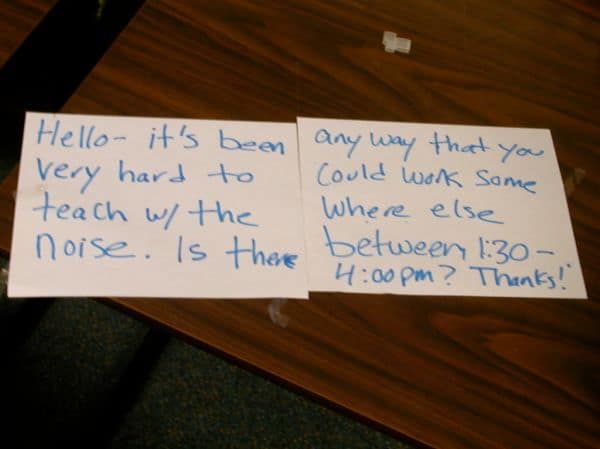 Hello- it's been
very hard to
teach w/ the
noise. Is there
any way that you
Could work some
where else
between 1:30-
4:00pm? Thanks!